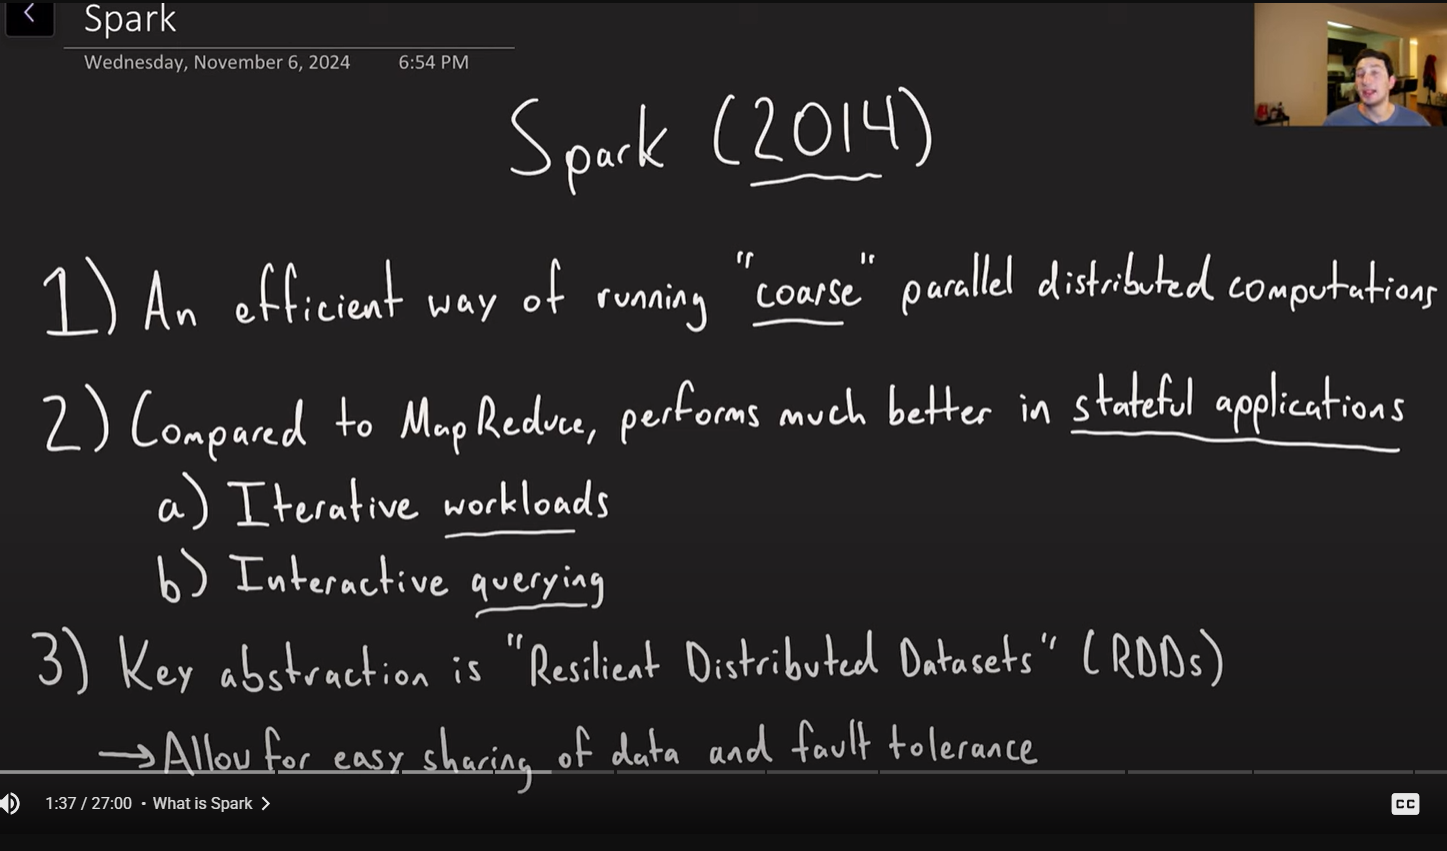 Spark
Wednesday, November 6, 2024 6:54 PM
Spark (2014)
1) An efficient way of running "coarse" parallel distributed computations
2) Compared to MapReduce, performs much better in stateful applications
a) Iterative workloads
b) Interactive querying
3) Key abstraction is "Resilient Distributed Datasets" (RDDs)
→ Allow for easy sharing of data and fault tolerance
1:37 / 27:00 • What is Spark >
CC